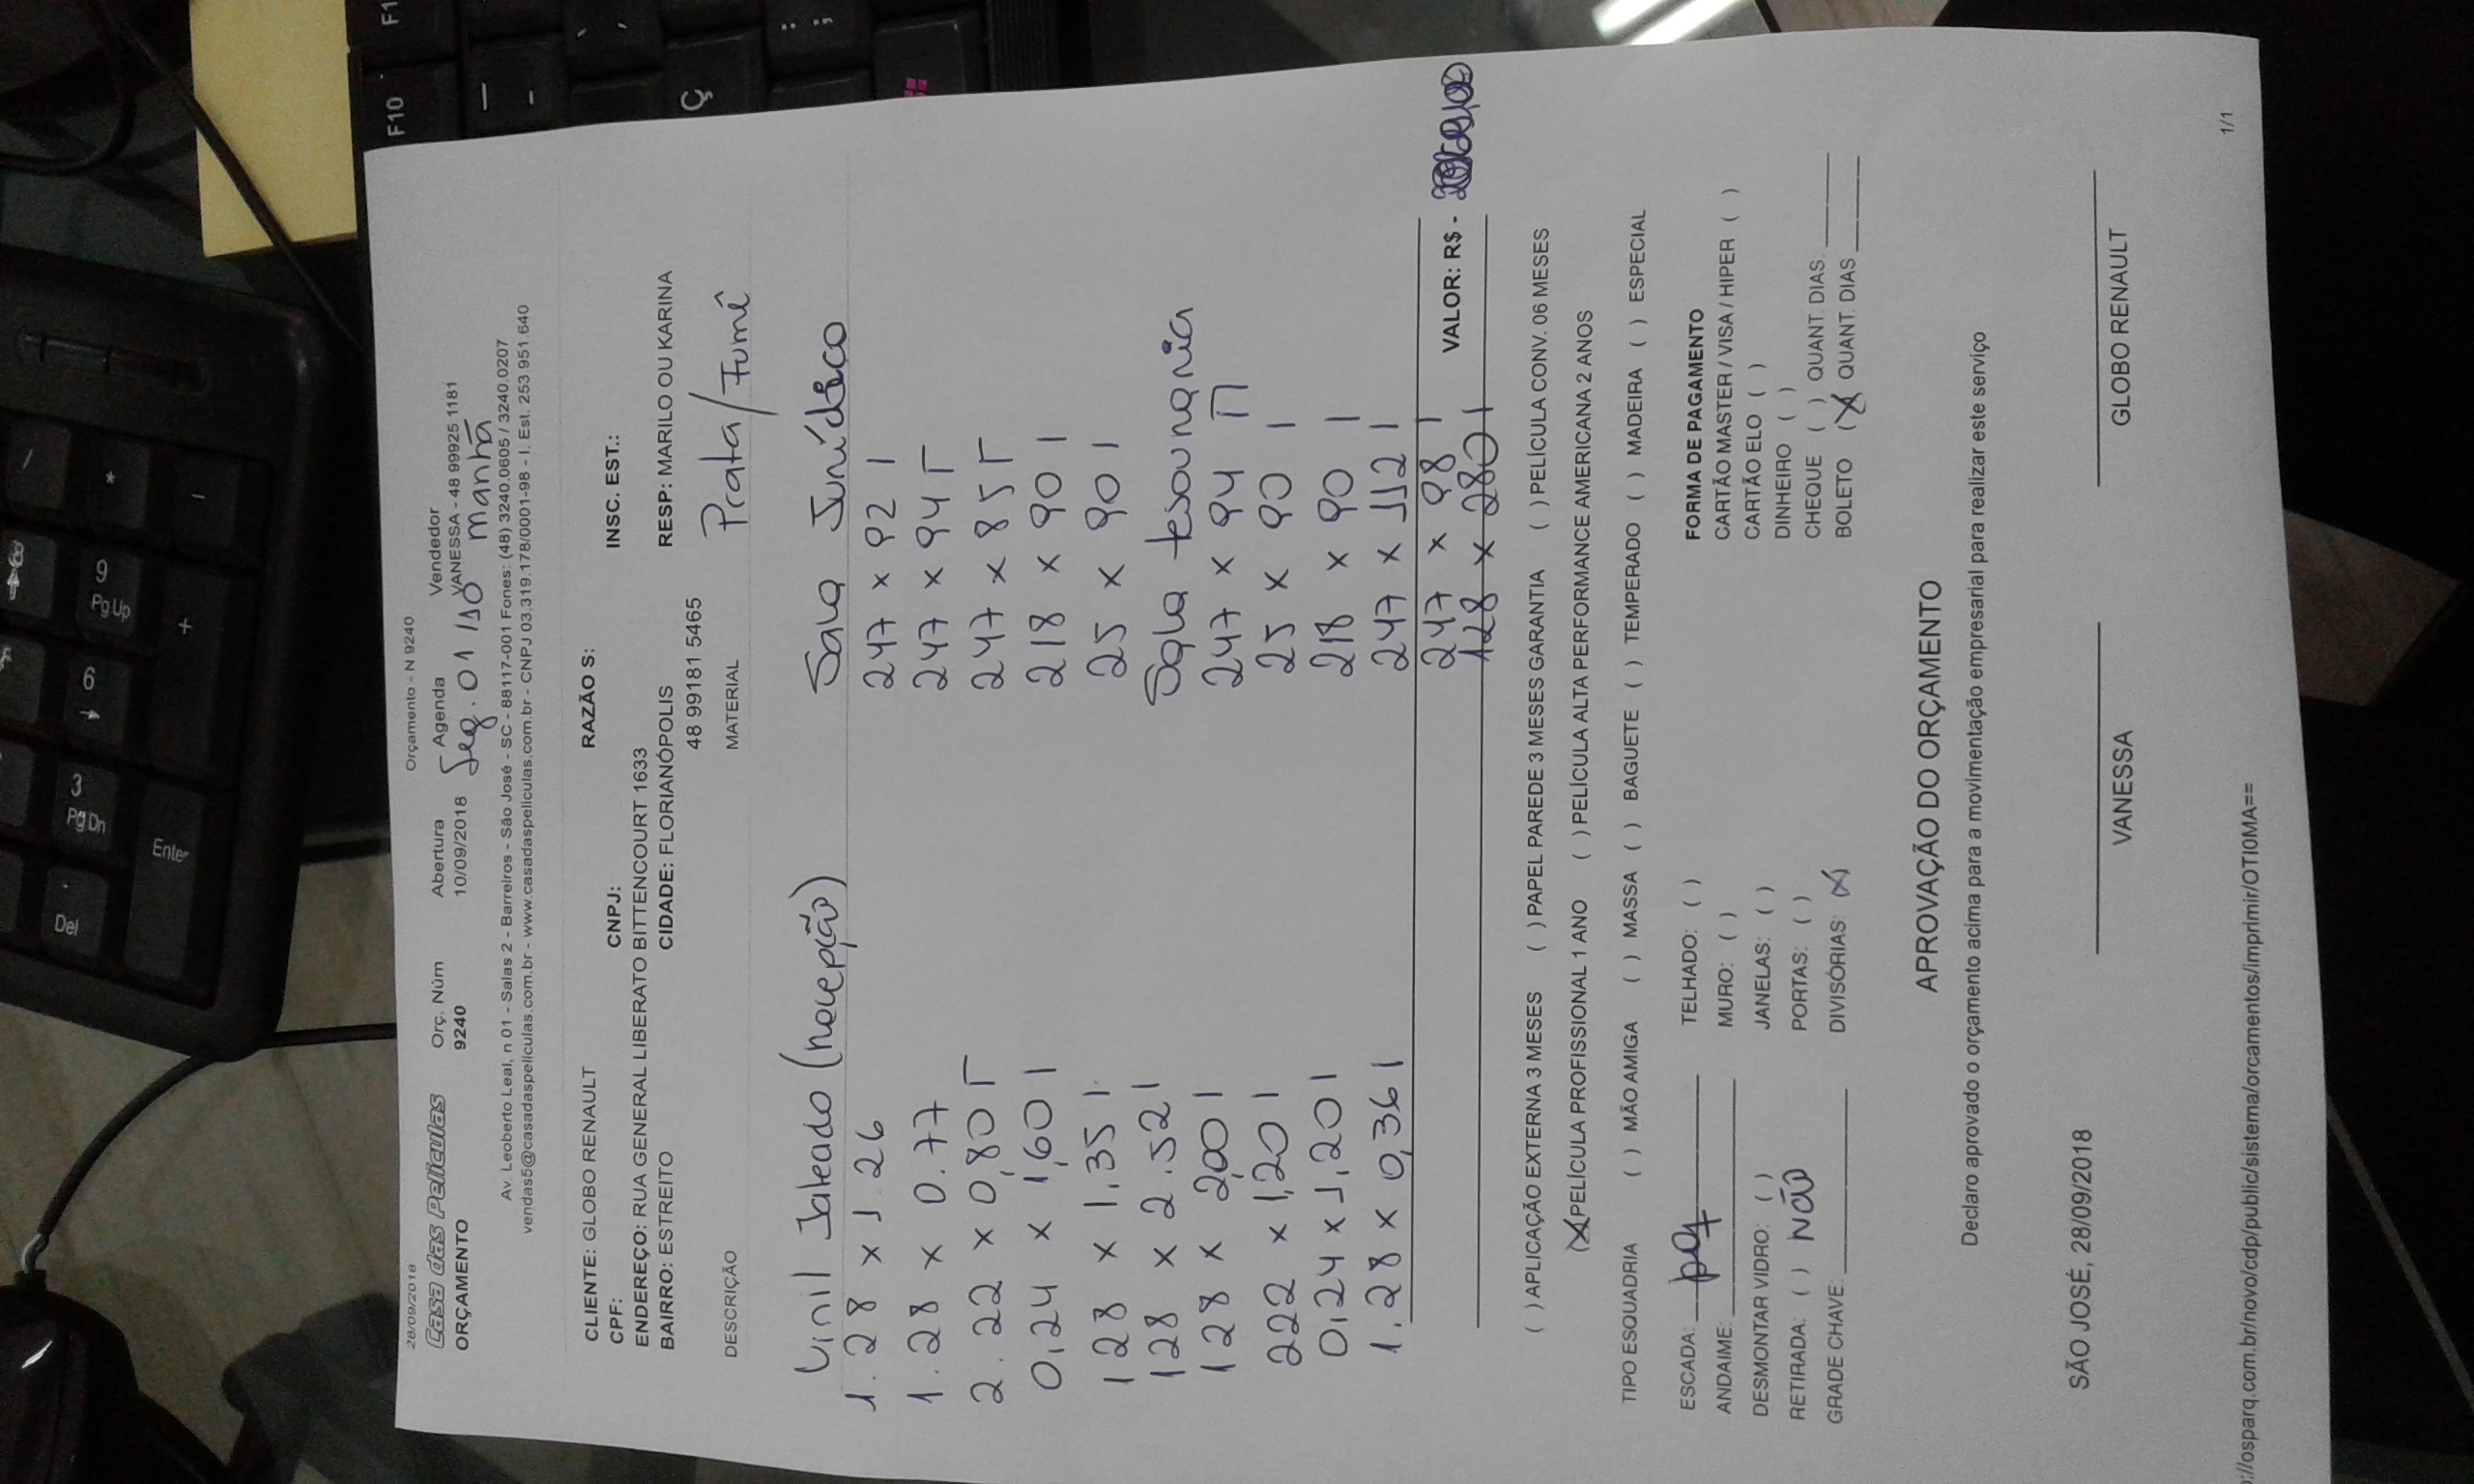 28/09/2018 Orçamento - N 9240
Casa das Películas Orç. Núm Abertura Agenda Vendedor
ORÇAMENTO 9240 10/09/2018 Seg. 01/10 manhã VANESSA - 48 99925 1181
Av. Leoberto Leal, n 01 - Salas 2 - Barreiros - São José - SC - 88117-001 Fones: (48) 3240.0605 / 3240.0207
vendas5@casadaspeliculas.com.br - www.casadaspeliculas.com.br - CNPJ 03.319.178/0001-98 - I. Est. 253 951.640
CLIENTE: GLOBO RENAULT RAZÃO S:
CPF: CNPJ: INSC. EST.:
ENDEREÇO: RUA GENERAL LIBERATO BITTENCOURT 1633
BAIRRO: ESTREITO CIDADE: FLORIANÓPOLIS RESP: MARILO OU KARINA
48 99181 5465
DESCRIÇÃO MATERIAL Prata/Fumê
Vinil Jateado (recepção) Sala Jurídico
1.28 x 1.26 247 x 92 1
1.28 x 0.77 247 x 94 Γ
2.22 x 0,80 Γ 247 x 85 Γ
0,24 x 1,60 1 218 x 90 1
128 x 1,35 1 25 x 90 1
128 x 2.52 1 Sala tesouraria
128 x 2,00 1 247 x 94 Π
222 x 1,20 1 25 x 90 1
0,24 x 1,20 1 218 x 90 1
1.28 x 0,36 1 247 x 112 1
247 x 98 1
128 x 280 1
VALOR: R$ -
( ) APLICAÇÃO EXTERNA 3 MESES ( ) PAPEL PAREDE 3 MESES GARANTIA ( ) PELÍCULA CONV. 06 MESES
(X) PELÍCULA PROFISSIONAL 1 ANO ( ) PELÍCULA ALTA PERFORMANCE AMERICANA 2 ANOS
TIPO ESQUADRIA ( ) MÃO AMIGA ( ) MASSA ( ) BAGUETE ( ) TEMPERADO ( ) MADEIRA ( ) ESPECIAL
ESCADA: TELHADO: ( ) FORMA DE PAGAMENTO
ANDAIME: MURO: ( ) CARTÃO MASTER / VISA / HIPER ( )
CARTÃO ELO ( )
DESMONTAR VIDRO: ( ) JANELAS: ( ) DINHEIRO ( )
RETIRADA: ( ) não PORTAS: ( ) CHEQUE ( ) QUANT. DIAS:
GRADE CHAVE: DIVISÓRIAS: (X) BOLETO (X) QUANT. DIAS
APROVAÇÃO DO ORÇAMENTO
Declaro aprovado o orçamento acima para a movimentação empresarial para realizar este serviço
SÃO JOSÉ, 28/09/2018
VANESSA GLOBO RENAULT
://osparq.com.br/novo/cdp/public/sistema/orcamentos/imprimir/OTI0MA== 1/1
F10
Ç
9
Pg Up
6
3
Pg Dn
Enter
Del
*
/
+